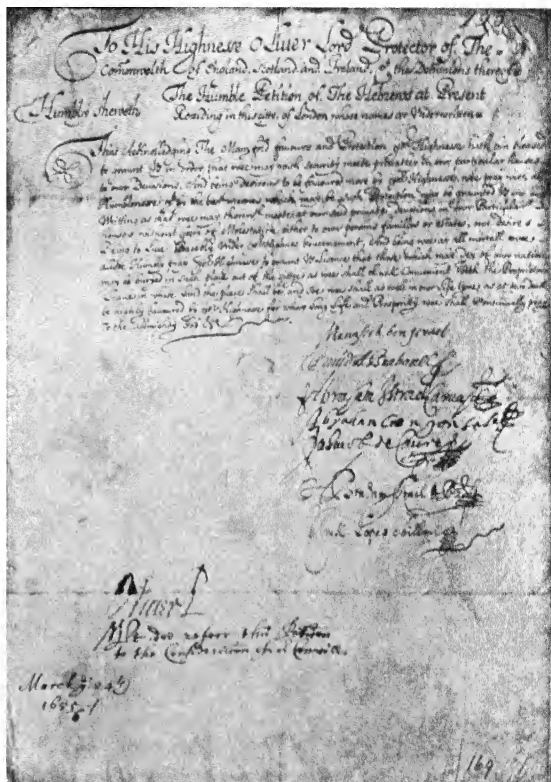 To His Highnesse Oliver Lord Protector of The
Comonwelth of England, Scotland and Ireland, & the Dominions thereof
The Humble Petition of The Hebrews at Present
Humbly Sheweth
Residing in this citty of London whose names ar Underwritten
That Acknolledging The Manyfold favours and Protection Highnesse hath bin pleased
to graunt us in order that wee may with security meete privatley in our particular houses
to our Devosions, And being desirous to be favoured more by Highnesse wee pray with
Humblenesse the best meanes which may be Protection may be graunted Us in
Writing as that wee may meete at our said private devosions in our Particular
houses without feere of Molestation either to our persons famillies or estates, our desires
Being to Live Peacebly Under Highnesse Governement, And being wee ar all mortall wee
allsoe Humbly pray Highnesse to graunt Us License that those which may dey of our nation
may be buryed in such place out of the cittye as wee shall thinck Convenient with the Proprietors
Leave in whose Land this place shall be and soe wee shall as well in our Life tyme as at our death
be highly favoured by Highnesse for whose Long Life and Prosperity wee shall Continually pray
to the Allmighty God
Menasseh ben Israel
David Abrabanel
Abraham Israel Carvajal
Abraham Coen Gonsales
Jahacob de Caceres
Abraham Israel
Isak Lopes Chillon
Oliver P
Wee doe referr this Peticion
to the Consideracon of ye Councill.
March ye 24th
1655/6
169